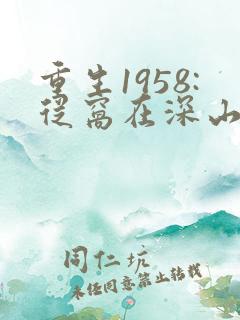 重生1958:
从窝在深山
同仁坑
未经同意禁止转载